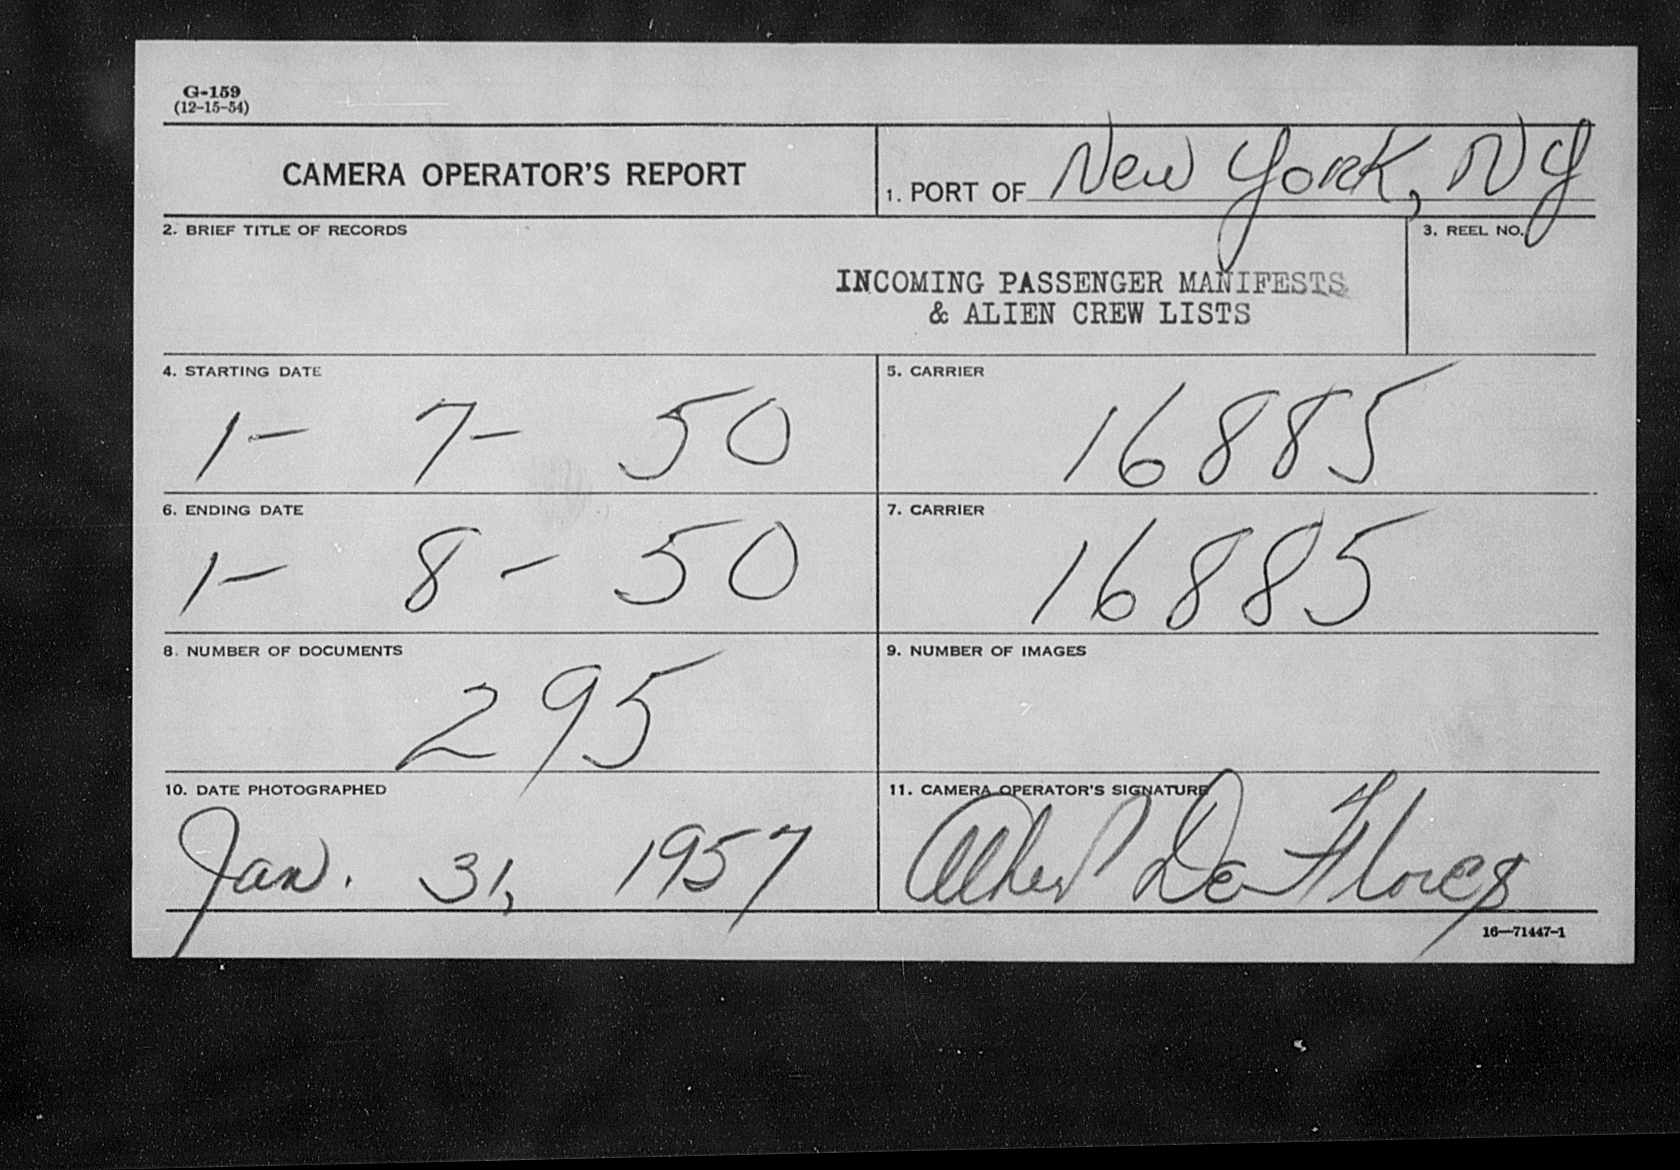 G-159
(12-15-54)
CAMERA OPERATOR'S REPORT
1. PORT OF New York, NY
2. BRIEF TITLE OF RECORDS
3. REEL NO.
INCOMING PASSENGER MANIFESTS
& ALIEN CREW LISTS
4. STARTING DATE
1- 7- 50
5. CARRIER
16885
6. ENDING DATE
1- 8- 50
7. CARRIER
16885
8. NUMBER OF DOCUMENTS
295
9. NUMBER OF IMAGES
10. DATE PHOTOGRAPHED
Jan. 31, 1957
11. CAMERA OPERATOR'S SIGNATURE
Albert De Flores
16—71447-1